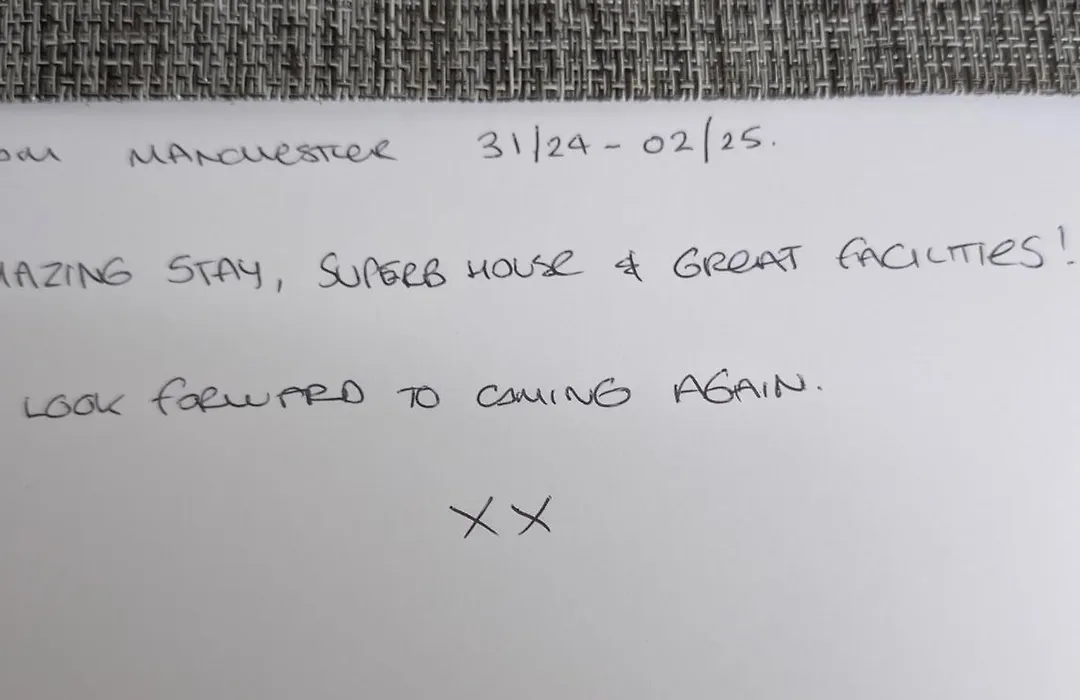 MANCHESTER 31/24 - 02/25.
MAZING STAY, SUPERB HOUSE & GREAT FACILITIES!
LOOK FORWARD TO COMING AGAIN.
XX